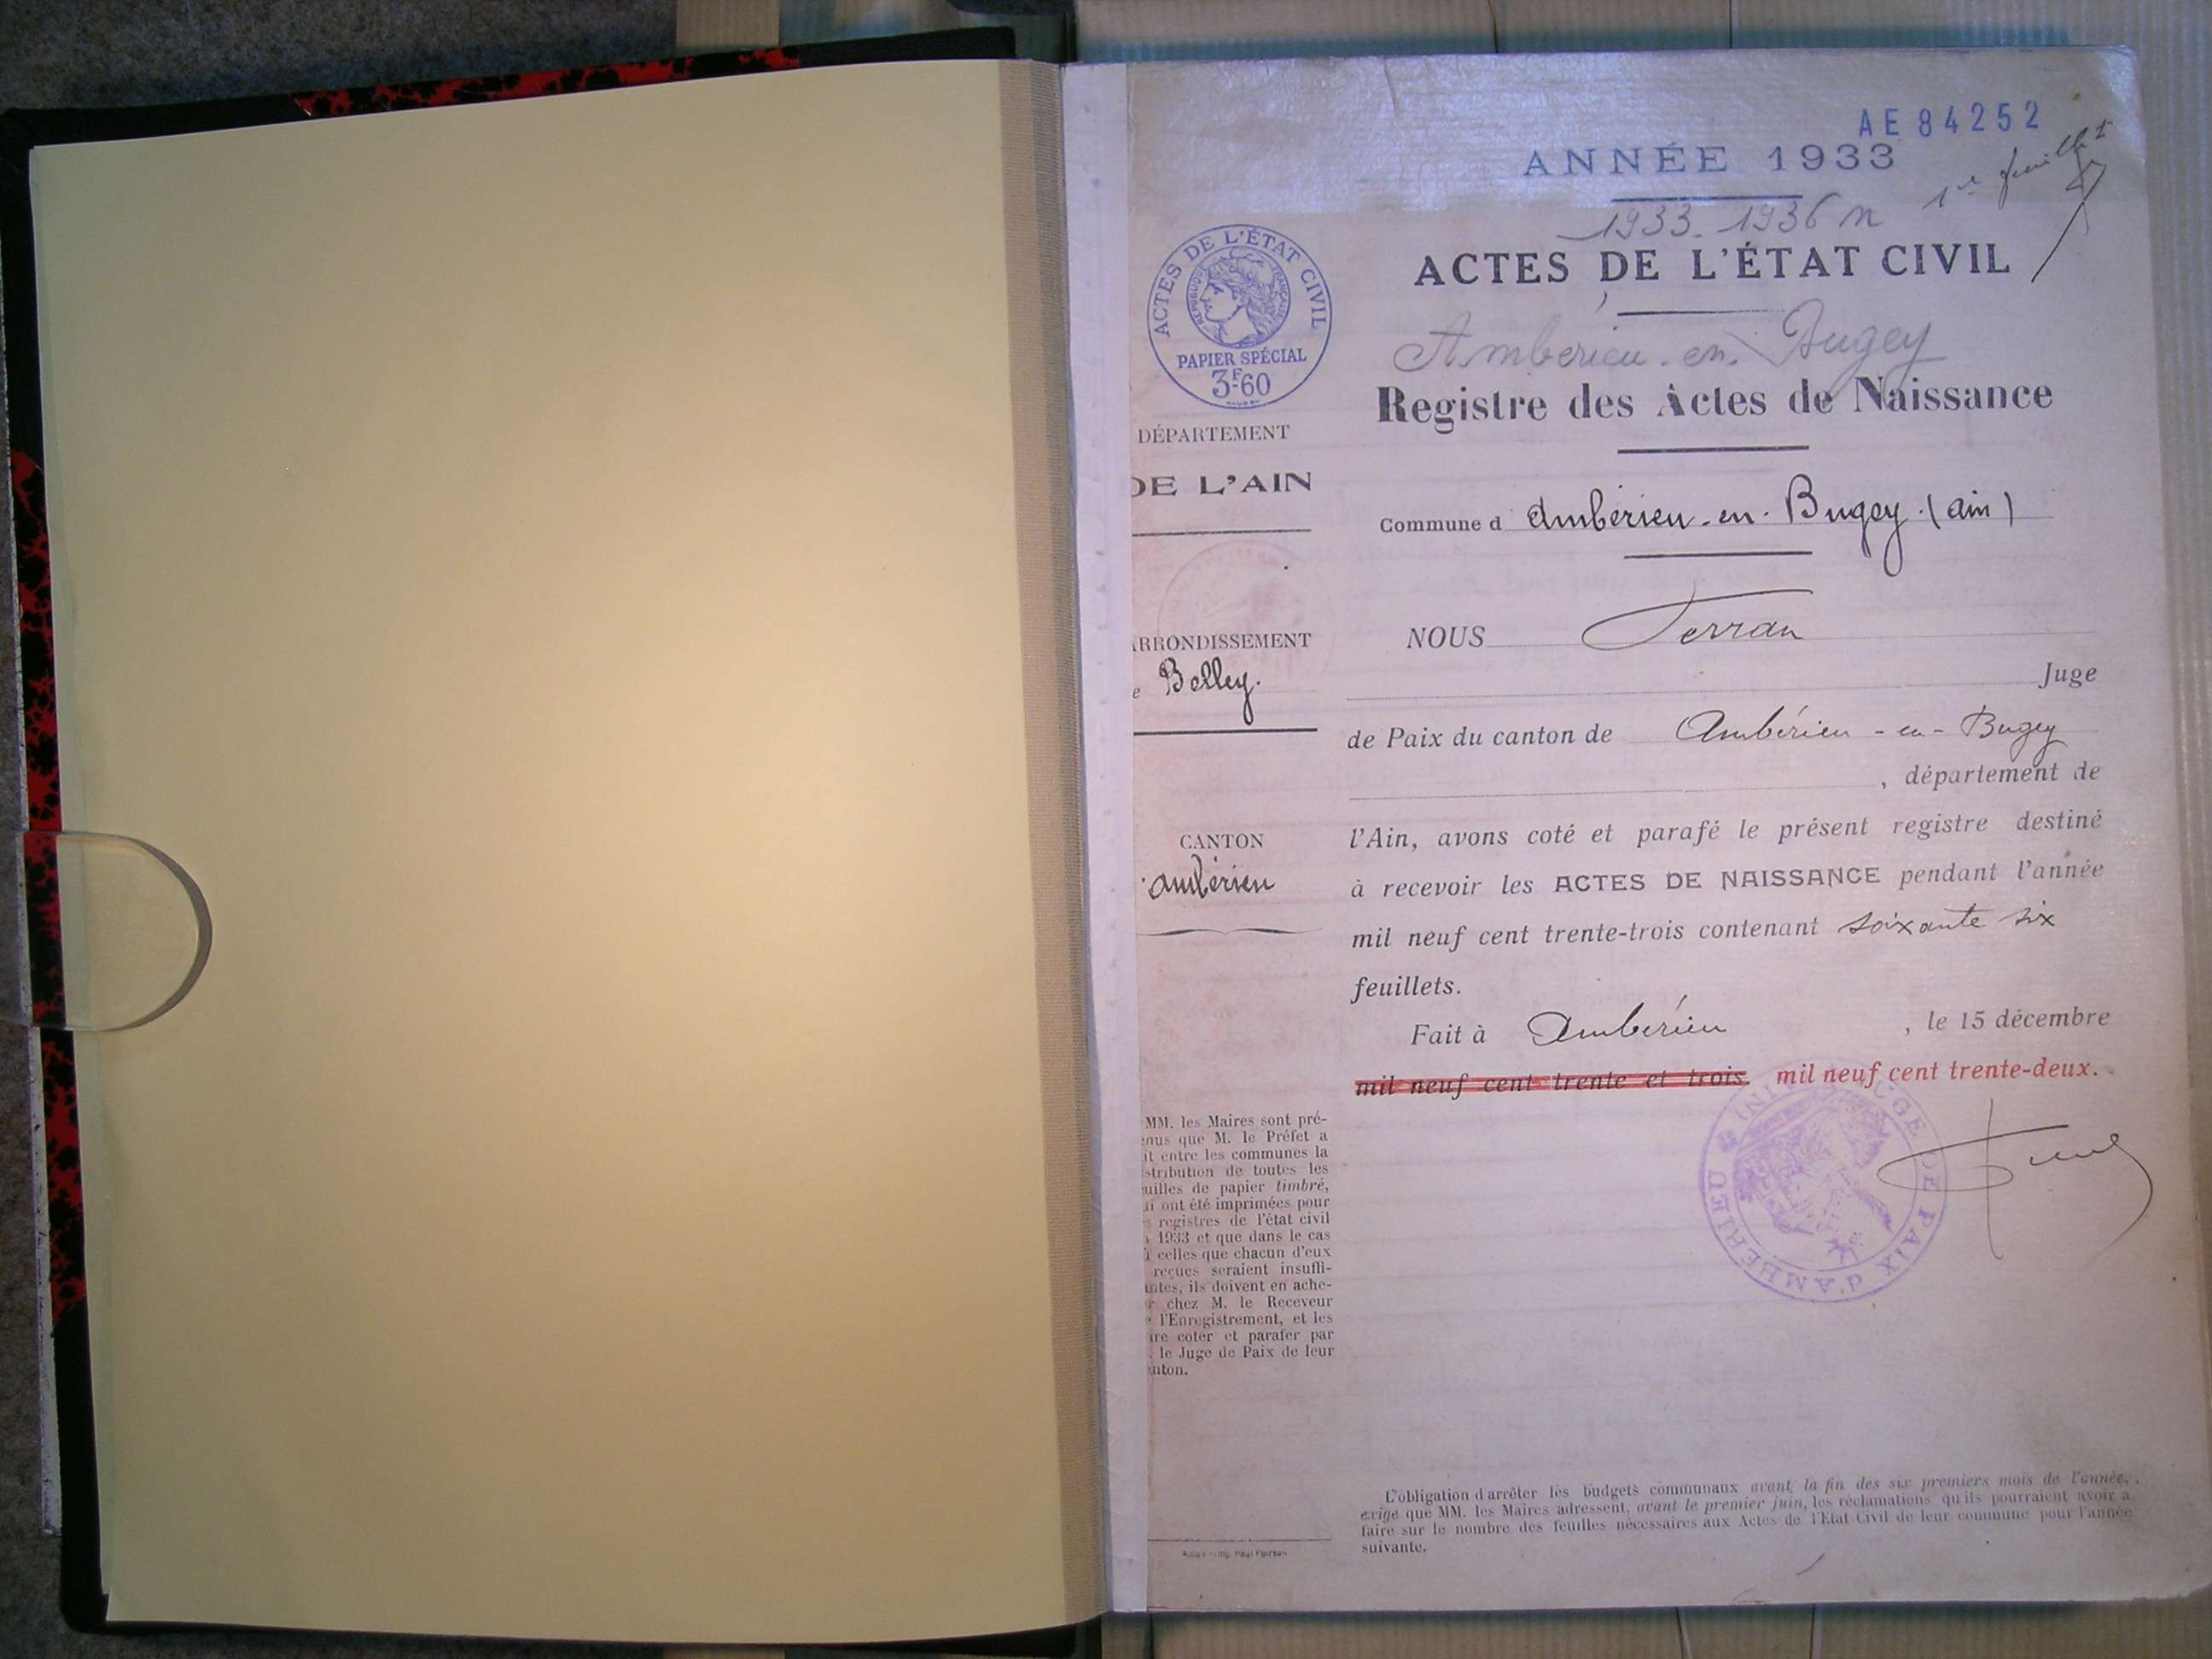 AE 84252
ANNÉE 1933
1er feuillet
1933-1936 n
ACTES DE L'ÉTAT CIVIL
Ambérieu-en-Bugey
Registre des Actes de Naissance
Commune d Ambérieu-en-Bugey (ain)
ACTES DE L'ÉTAT CIVIL
RÉPUBLIQUE FRANÇAISE
PAPIER SPÉCIAL
3F.60
DÉPARTEMENT
DE L'AIN
ARRONDISSEMENT
e Belley.
CANTON
ambérieu
MM. les Maires sont pré-
enus que M. le Préfet a
it entre les communes la
stribution de toutes les
uilles de papier timbré,
ui ont été imprimées pour
s registres de l'état civil
1933 et que dans le cas
ù celles que chacun d'eux
reçues seraient insuffi-
ntes, ils doivent en ache-
r chez M. le Receveur
l'Enregistrement, et les
ire coter et parafer par
. le Juge de Paix de leur
nton.
NOUS Ferran
Juge
de Paix du canton de Ambérieu-en-Bugey
, département de
l'Ain, avons coté et parafé le présent registre destiné
à recevoir les ACTES DE NAISSANCE pendant l'année
mil neuf cent trente-trois contenant soixante six
feuillets.
Fait à Ambérieu , le 15 décembre
mil neuf cent trente et trois. mil neuf cent trente-deux.
JUGE DE PAIX D'AMBÉRIEU
L'obligation d'arrêter les budgets communaux avant la fin des six premiers mois de l'année,
exige que MM. les Maires adressent, avant le premier juin, les réclamations qu'ils pourraient avoir à
faire sur le nombre des feuilles nécessaires aux Actes de l'Etat Civil de leur commune pour l'année
suivante.